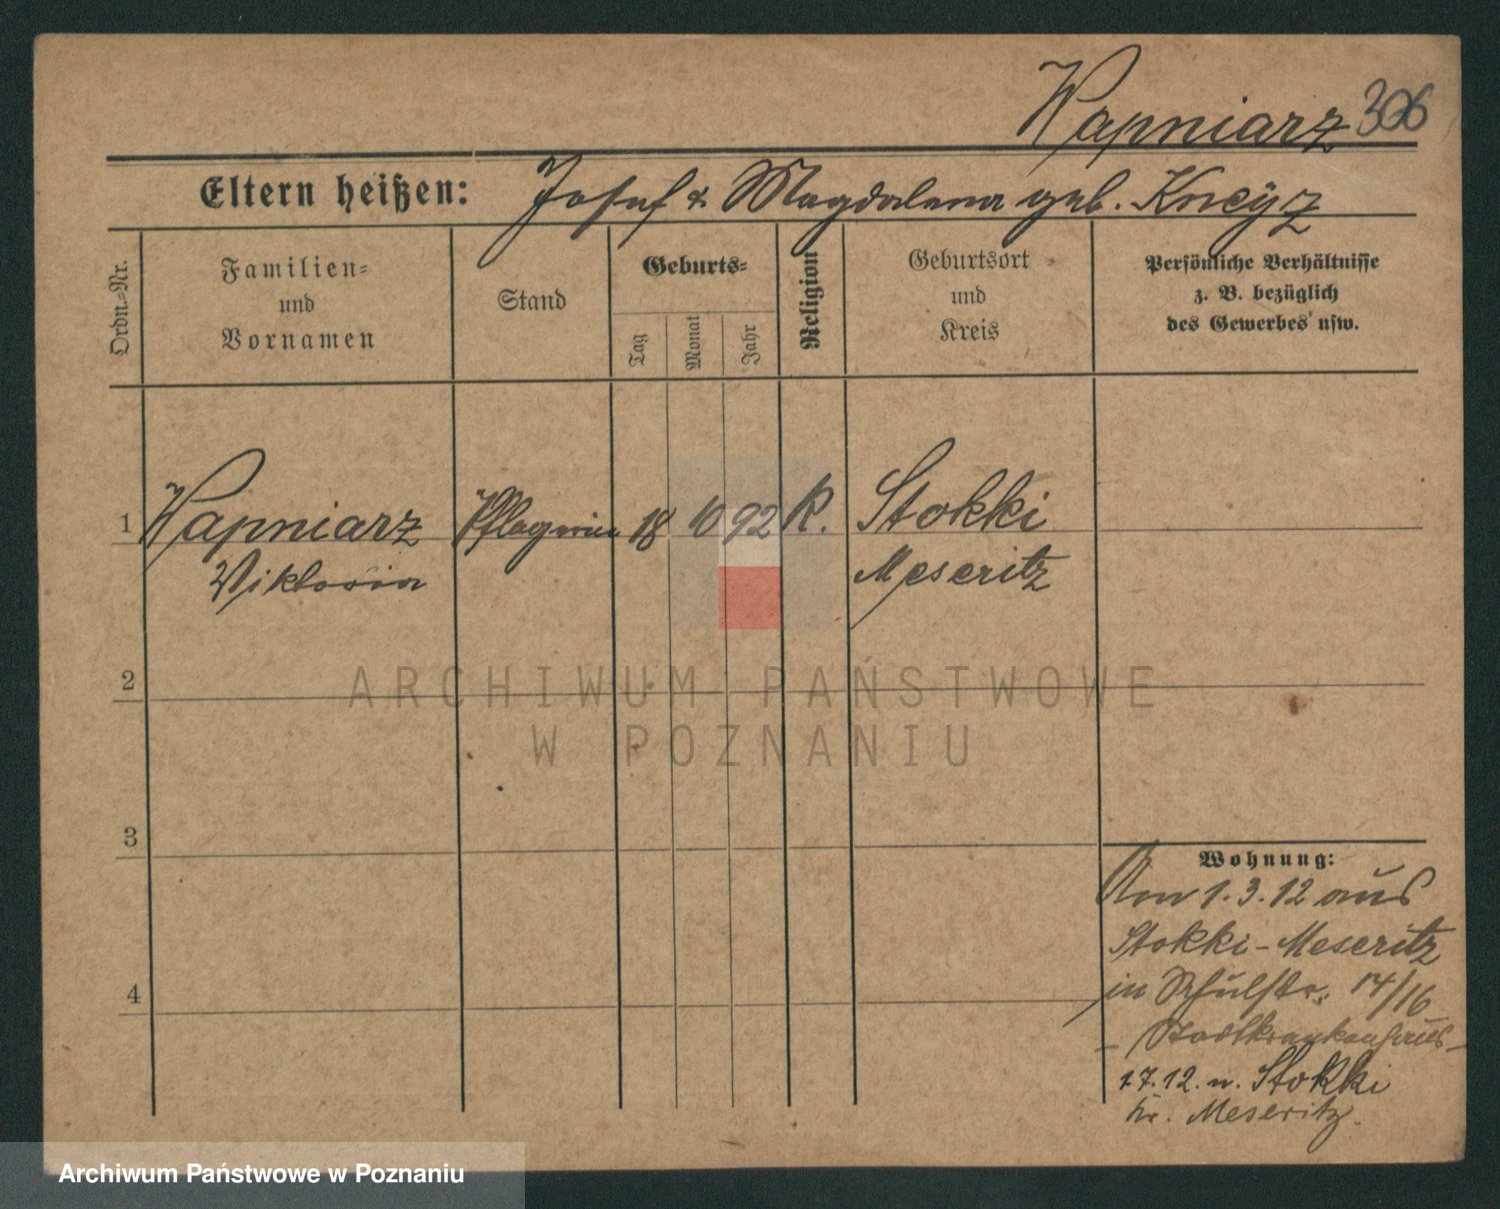 Wapniarz 306
Eltern heißen: Josef & Magdalena geb.
Ordn.-Nr.
Familien-
und
Vornamen
Stand
Geburts-
Tag
Monat
Jahr
Religion
Geburtsort
und
Kreis
Persönliche Verhältnisse
z. B. bezüglich
des Gewerbes usw.
1 Wapniarz Pflegerin 18 10 92 K. Stokki
Viktoria Meseritz
2
ARCHIWUM PAŃSTWOWE
W POZNANIU
3
Wohnung:
Am 1.3.12 aus
Stokki-Meseritz
4
in Schulstr. 14/16
- Stadtkrankenhaus -
1.7.12. n. Stokki
Kr. Meseritz.
Archiwum Państwowe w Poznaniu